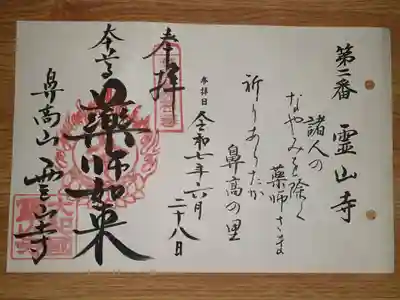 第二番 霊山寺
諸人の
なやみを除く
薬師さま
祈りあらたか
鼻高の里
参拝日 令和七年六月
二十八日
奉拝
本尊 薬師如来
鼻高山 霊山寺